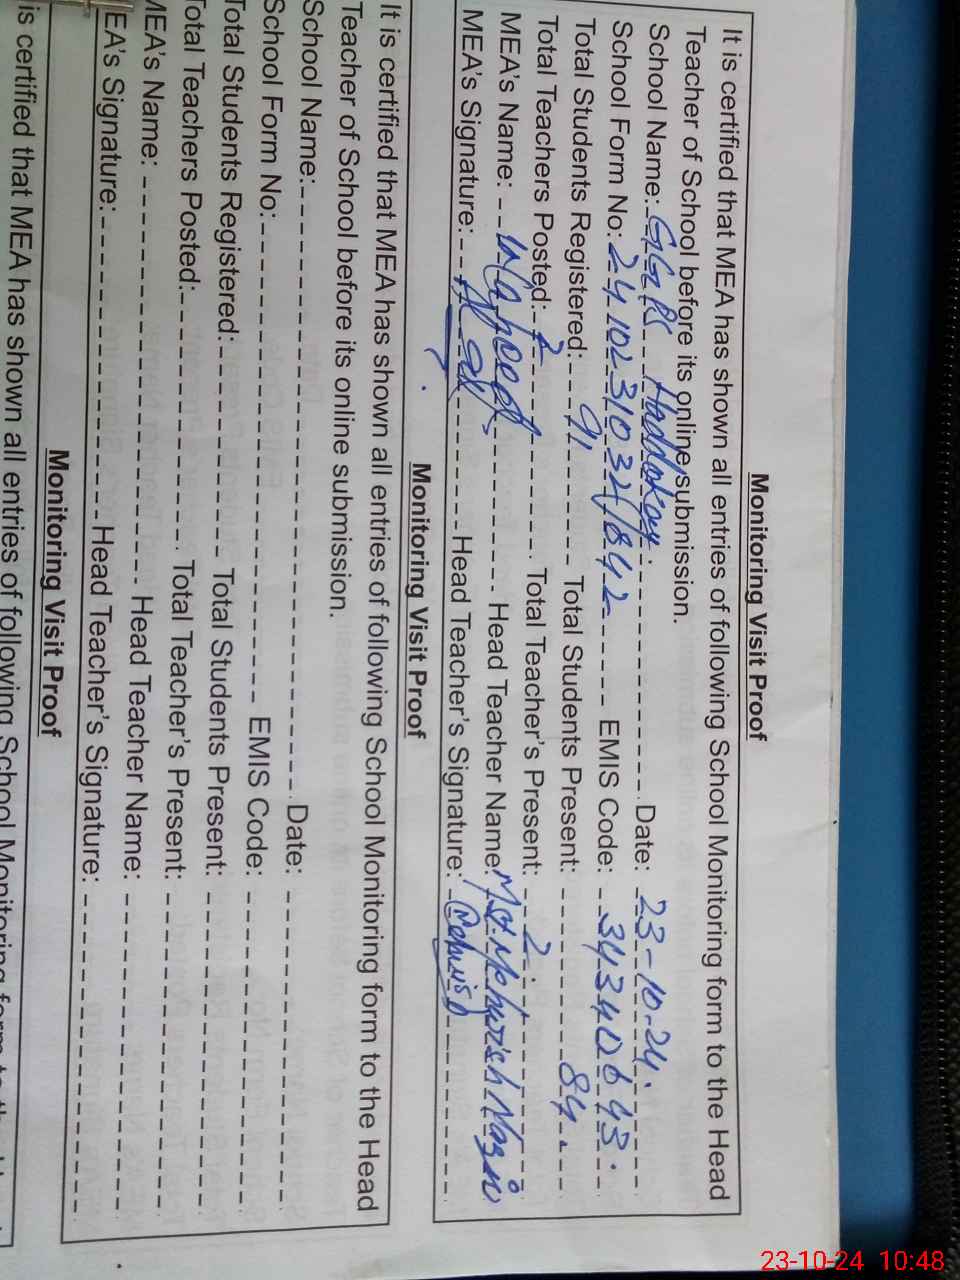 Monitoring Visit Proof
It is certified that MEA has shown all entries of following School Monitoring form to the Head
Teacher of School before its online submission.
School Name: GGPS Haddakay Date: 23-10-24.
School Form No: 24102310321842 EMIS Code: 34340643.
Total Students Registered: 91 Total Students Present: 84.
Total Teachers Posted: 2 Total Teacher's Present: 2.
MEA's Name: Waheed Head Teacher Name: Mst. Nazia
MEA's Signature: Head Teacher's Signature:
Monitoring Visit Proof
It is certified that MEA has shown all entries of following School Monitoring form to the Head
Teacher of School before its online submission.
School Name: Date:
School Form No: EMIS Code:
Total Students Registered: Total Students Present:
Total Teachers Posted: Total Teacher's Present:
MEA's Name: Head Teacher Name:
EA's Signature: Head Teacher's Signature:
Monitoring Visit Proof
is certified that MEA has shown all entries of following School Monitoring form to the
23-10-24 10:48